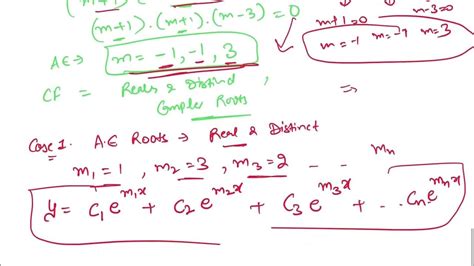 (m+1).(m+1).(m-3)=0
m+1=0 m-3=0
m=-1 m=-1 m=3
AE→ m = -1, -1, 3
CF = Reals & Distinct,
Complex Roots ⇒
Case 1. A.E Roots → Real & Distinct
m₁=1, m₂=3, m₃=2 - - mₙ
y = C₁e^{m₁x} + C₂e^{m₂x} + C₃e^{m₃x} + ... Cₙe^{mₙx}